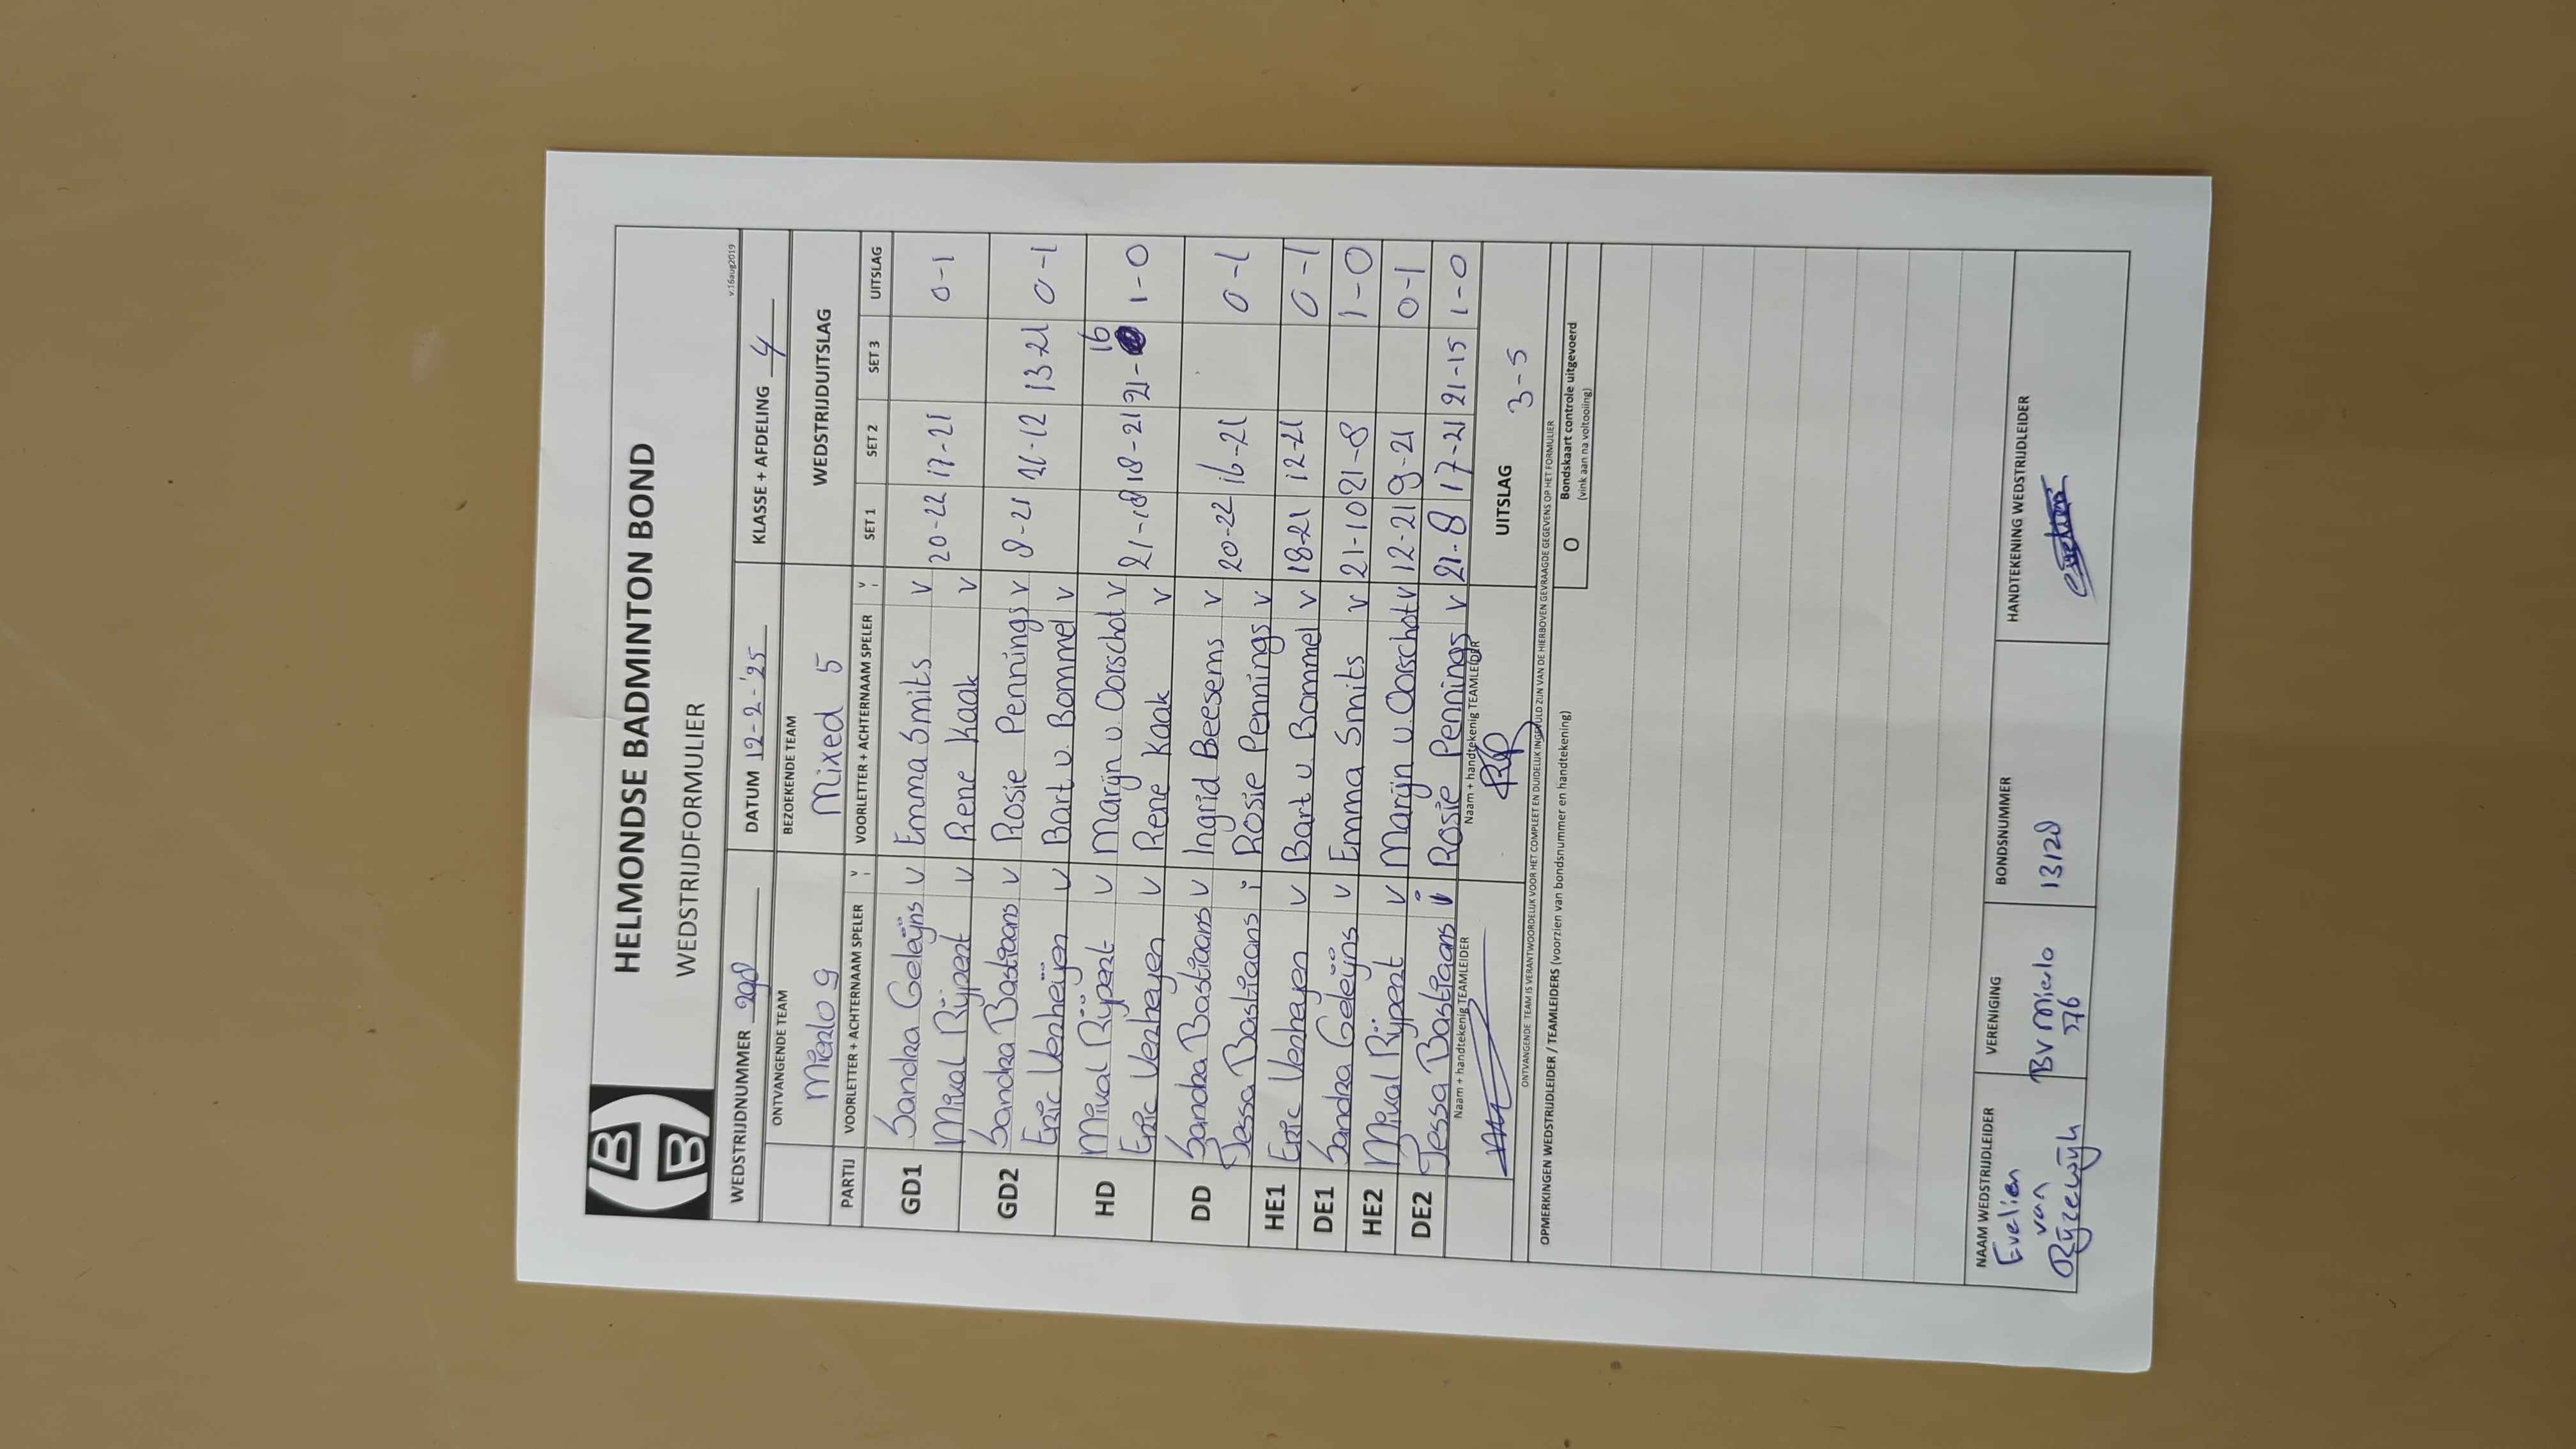 HELMONDSE BADMINTON BOND
WEDSTRIJDFORMULIER
v.16aug2019
WEDSTRIJDNUMMER 298 DATUM 12-2-'25 KLASSE + AFDELING 4
ONTVANGENDE TEAM BEZOEKENDE TEAM WEDSTRIJDUITSLAG
Mierlo 9 Mixed 5
PARTIJ VOORLETTER + ACHTERNAAM SPELER V i VOORLETTER + ACHTERNAAM SPELER V i SET 1 SET 2 SET 3 UITSLAG
GD1 Sandra Geleijns v Emma Smits v 20-22 17-21 0-1
Mival Rijpert v Rene Kaak v
GD2 Sandra Bastiaans v Rosie Pennings v 8-21 21-12 13-21 0-1
Eric Verheijen v Bart v. Bommel v
HD Mival Rijpert v Marijn v. Oorschot v 21-18 18-21 21-16 1-0
Eric Verheyen v Rene Kaak v
DD Sandra Bastiaans v Ingrid Beesems v 20-22 16-21 0-1
Jessa Bastiaans i Rosie Pennings v
HE1 Eric Verheyen v Bart v. Bommel v 18-21 12-21 0-1
DE1 Sandra Geleijns v Emma Smits v 21-10 21-8 1-0
HE2 Mival Rijpert v Marijn v. Oorschot v 12-21 9-21 0-1
DE2 Jessa Bastiaans i Rosie Pennings v 21-8 17-21 21-15 1-0
Naam + handtekenig TEAMLEIDER Naam + handtekenig TEAMLEIDER UITSLAG 3-5
ONTVANGENDE TEAM IS VERANTWOORDELIJK VOOR HET COMPLEET EN DUIDELIJK INGEVULD ZIJN VAN DE HIERBOVEN GEVRAAGDE GEGEVENS OP HET FORMULIER
OPMERKINGEN WEDSTRIJDLEIDER / TEAMLEIDERS (voorzien van bondsnummer en handtekening) O Bondskaart controle uitgevoerd
(vink aan na voltooiing)
NAAM WEDSTRIJDLEIDER VERENIGING BONDSNUMMER HANDTEKENING WEDSTRIJDLEIDER
Evelien
van
Rijzewijk
BV Mierlo
'76
13128